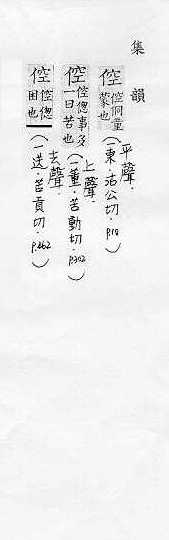 集韻
倥 倥侗童蒙也 平聲．(一東．沽公切．P.10)
倥 倥傯事多一曰苦也 上聲．(一董．苦動切．P.302)
倥 倥傯困也 去聲．(一送．苦貢切．P.462)